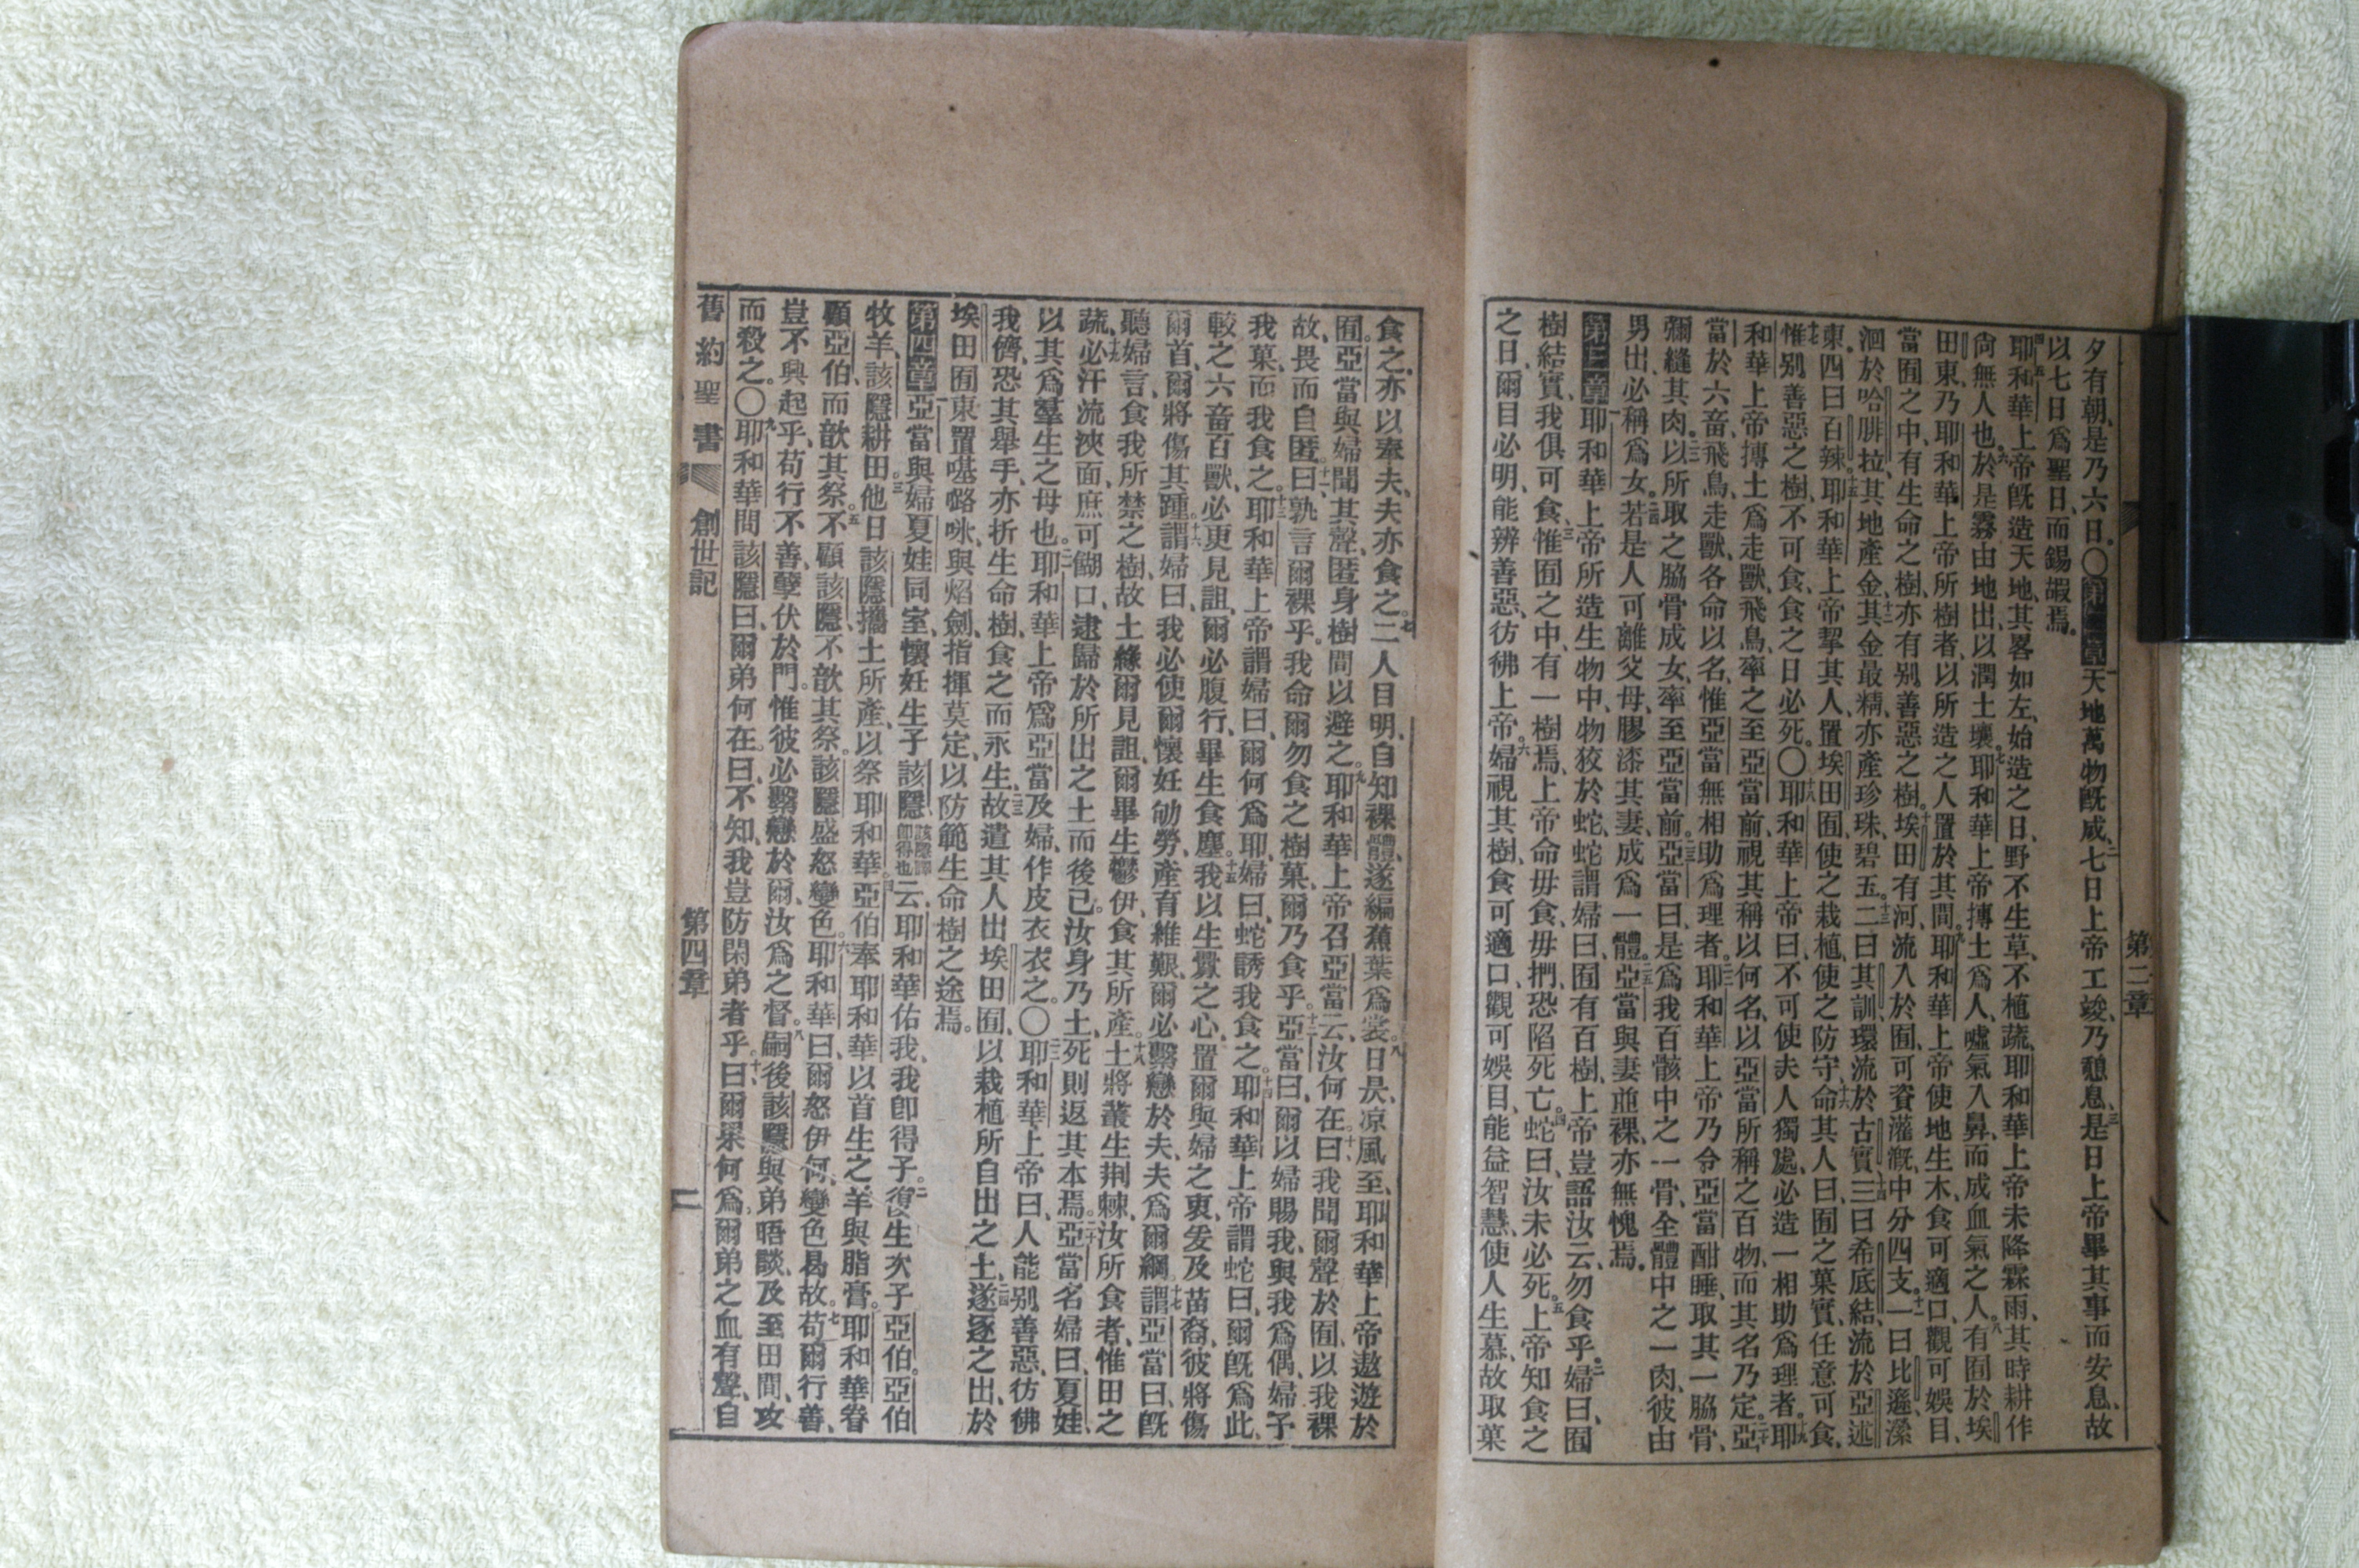 第二章
夕有朝、是乃六日。〇第二章一天地萬物旣成、二七日上帝工竣、乃憩息、三是日上帝畢其事而安息、故
以七日爲聖日、而錫嘏焉。
四耶和華五上帝旣造天地、其畧如左、始造之日、野不生草、不植蔬、耶和華上帝未降霖雨、其時耕作
尙無人也、六於是霧由地出、以潤土壤。七耶和華上帝摶土爲人、噓氣入鼻、而成血氣之人。八有囿於埃
田東、乃耶和華上帝所樹者、以所造之人置於其間。九耶和華上帝使地生木、食可適口、觀可娛目、
當囿之中、有生命之樹、亦有別善惡之樹。十埃田有河、流入於囿、可資灌漑、中分四支。十一一曰比遜、瀠
洄於哈腓拉、其地產金、十二其金最精、亦產珍珠碧玉。十三二曰其訓、環流於古實、十四三曰希底結、流於亞述
東。四曰百辣。十五耶和華上帝挈其人、置埃田囿、使之栽植、使之防守、十六命其人曰、囿之菓實、任意可食、
十七惟別善惡之樹、不可食、食之日必死。〇十八耶和華上帝曰、不可使夫人獨處、必造一相助爲理者。十九耶
和華上帝摶土爲走獸飛鳥、率之至亞當前、視其稱以何名、以亞當所稱之百物、而其名乃定。二十亞
當於六畜、飛鳥、走獸、各命以名、惟亞當無相助爲理者。二一耶和華上帝乃令亞當酣睡、取其一脇骨、
彌縫其肉。二二以所取之脇骨成女、率至亞當前。二三亞當曰、是爲我百骸中之一骨、全體中之一肉、彼由
男出、必稱爲女。二四若是人可離父母、膠漆其妻、成爲一體。二五亞當與妻並裸、亦無愧焉。
第三章一耶和華上帝所造生物中、物狡於蛇、蛇謂婦曰、囿有百樹、上帝豈語汝云、勿食乎。二婦曰、囿
樹結實、我俱可食、三惟囿之中、有一樹焉、上帝命毋食、毋捫、恐陷死亡。四蛇曰、汝未必死。五上帝知食之
之日、爾目必明、能辨善惡、彷彿上帝。六婦視其樹、食可適口、觀可娛目、能益智慧、使人生慕、故取菓
食之、亦以奉夫、夫亦食之。七二人目明、自知裸體、遂編蕉葉爲裳。八日昃、凉風至、耶和華上帝遨遊於
囿。亞當與婦聞其聲、匿身樹間以避之。九耶和華上帝召亞當云、汝何在。十曰、我聞爾聲於囿、以我裸
故、畏而自匿。十一曰、孰言爾裸乎。我命爾勿食之樹菓、爾乃食乎。十二亞當曰、爾以婦賜我、與我爲偶、婦予
我菓、而我食之。十三耶和華上帝謂婦曰、爾何爲耶、婦曰、蛇誘我食之。十四耶和華上帝謂蛇曰、爾旣爲此、
較之六畜百獸、必更見詛、爾必腹行、畢生食塵。十五我以生釁之心、置爾與婦之衷、爰及苗裔、彼將傷
爾首、爾將傷其踵。十六謂婦曰、我必使爾懷妊劬勞、產育維艱、爾必繫戀於夫、夫爲爾綱。十七謂亞當曰、旣
聽婦言、食我所禁之樹、故土緣爾見詛、爾畢生鬱伊、食其所產。十八土將叢生荆棘、汝所食者、惟田之
蔬。十九必汗流浹面、庶可餬口、逮歸於所出之土而後已。汝身乃土、死則返其本焉。二十亞當名婦曰、夏娃、
以其爲羣生之母也。二一耶和華上帝爲亞當及婦、作皮衣衣之。〇二二耶和華上帝曰、人能別善惡、彷彿
我儕、恐其舉手、亦折生命樹、食之而永生、二三故遣其人出埃田囿、以栽植所自出之土、二四遂逐之出、於
埃田囿東、置𠼻𡀔㖿、與焰劍、指揮莫定、以防範生命樹之途焉。
第四章一亞當與婦夏娃同室、懷妊生子該隱、該隱譯卽得也云、耶和華佑我、我卽得子。二復生次子亞伯。亞伯
牧羊、該隱耕田。三他日該隱攜土所產、以祭耶和華。四亞伯奉耶和華、以首生之羊與脂膏。耶和華眷
顧亞伯、而歆其祭。五不顧該隱、不歆其祭。該隱盛怒變色。六耶和華曰、爾怒伊何、變色曷故。七苟爾行善、
豈不興起乎、苟行不善、孽伏於門。惟彼必繫戀於爾、汝爲之督。八嗣後該隱與弟晤談、及至田間、攻
而殺之。〇九耶和華問該隱曰、爾弟何在。曰、不知、我豈防閑弟者乎。十曰、爾果何爲。爾弟之血有聲、自
舊約聖書 創世記 第四章 二